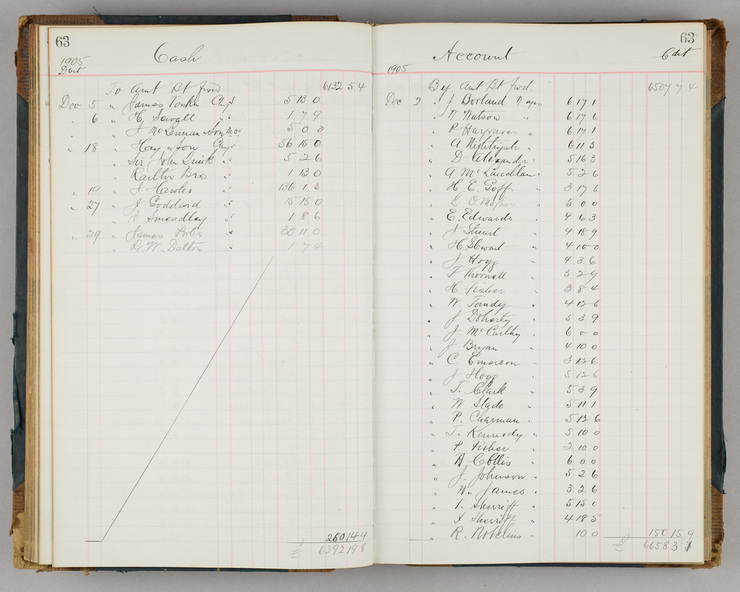 63
Cash
1905
To Amt Bt forw 6132 5 4
Dec 5 " James 5 13 0
" 6 " H Sewell " 1 7 9
" J McLennan & Son 5 0 0
" 18 " Hay & Son 56 15 0
" Sir John Quick " 5 2 6
" Bro 1 13 0
" 19 " J Hawles " 136 1 3
" 27 " J Goddard " 15 15 0
" J Smedley " 1 8 6
" 29 " James " 20 11 0
" R. W. Dalton " 1 7 4
250 14 4
£ 6392 19 8
63
Account
1905
By Amt Bt fwd 6507 7 4
Dec 2 " J Borland Wages 6 17 1
" W Watson " 6 17 6
" P Hargraves " 6 17 1
" A Nightingale " 6 11 3
" D Alexander " 5 16 3
" A McLauchlan " 5 2 6
" H E Goff " 3 17 6
" 5 0 0
" E. Edwards " 4 6 3
" J Stuart " 4 18 9
" H Stewart " 4 10 0
" J Hogg " 4 3 6
" F Thornell " 3 2 9
" H Fisher " 3 8 4
" W Tandy " 4 12 6
" J Doherty " 5 3 9
" J McCarthy " 6 0 0
" J Bryan " 4 10 0
" C Emerson " 3 12 6
" J Hogg " 5 12 6
" T. Clark " 5 3 9
" W Slade " 5 11 1
" P. Charman " 5 12 6
" T. Kennedy " 5 10 0
" P Fisher " 2 10 0
" Collis " 6 0 0
" J. Johnson " 5 2 6
" Wm James " 3 2 6
" T. Sherriff " 5 15 0
" J Sherriff " 4 18 5
" R. " 10 0 150 15 9
£ 6658 3 1